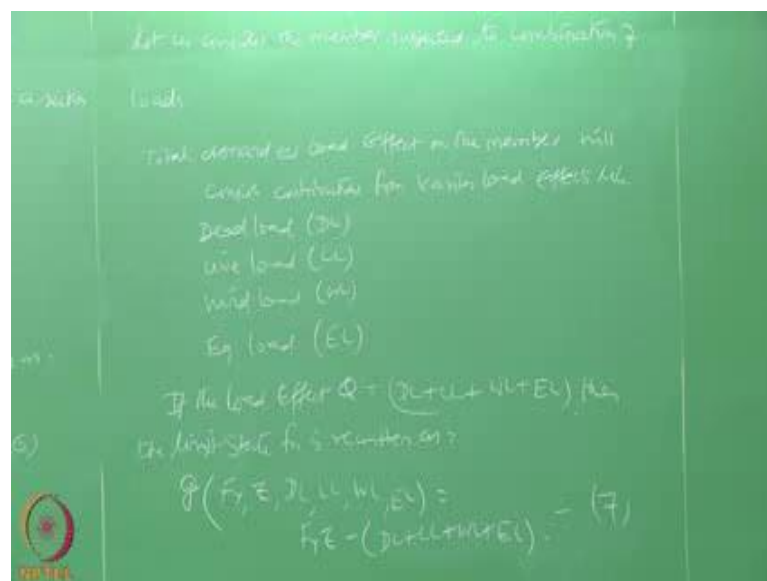 Let us consider the member subjected to combination of
loads
Total demand or Load Effect on the member will
contribution from various load effects
Dead load (DL)
Live load (LL)
Wind load (WL)
Eq load (EL)
If the load Effect Q = (DL+LL+WL+EL), then
the limit state fn is rewritten as:
g(Fy, Z, DL, LL, WL, EL) =
Fy Z - (DL+LL+WL+EL). - (7)
6)
NPTEL